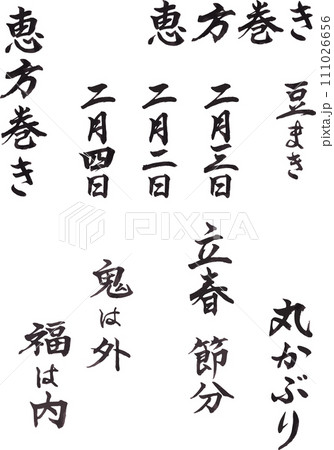 恵方巻き
豆まき
二月三日
二月二日
二月四日
恵方巻き
丸かぶり
立春 節分
鬼は外
福は内
PIXTA
pixta.jp - 111026656